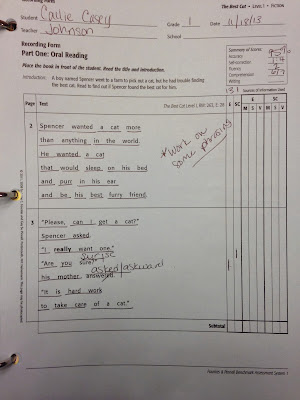 Recording Form
The Best Cat • LEVEL I • FICTION
Student Callie Casey Grade 1 Date 11/18/13
Teacher Johnson School
Recording Form
Part One: Oral Reading
Place the book in front of the student. Read the title and introduction.
Introduction: A boy named Spencer went to a farm to pick out a cat, but he had trouble finding
the best cat. Read to find out if Spencer found the best cat for him.
Summary of Scores:
Accuracy
Self-correction
Fluency
Comprehension
Writing
Sources of Information Used
Page Text E SC E SC
M S V M S V
2 Spencer wanted a cat more
than anything in the world.
He wanted a cat
that would sleep on his bed
and purr in his ear
and be his best furry friend.
*work on
some phrasing
3 "Please, can I get a cat?"
Spencer asked.
"I really want one."
"Are you sure?"
asked/asked
his mother answered.
"It is hard work
to take care of a cat."
Subtotal
Fountas & Pinnell Benchmark Assessment System 1